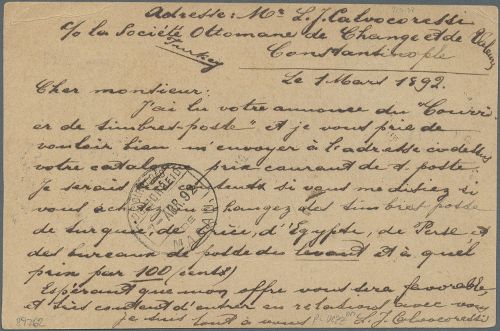 Adresse: Mr L. J. Calvocoressi
c/o la Société Ottomane de Change et de Valeurs
Turkey
Constantinople
Le 1 Mars 1892.
Cher monsieur:
J'ai lu votre annonce du "Courri-
er de timbres-poste" et je vous prie de
vouloir bien m'envoyer à l'adresse ci dessus
votre catalogue prix courant de t. poste
je serais si vous me disiez si
vous changez des timbres poste
de Turquie, de Grèce, d'Egypte, de Perse et
des bureaux de poste du levant et à quel
prix par 100 (cents)
Espérant que mon offre vous sera favorable
et très content d'entrer en relations avec vous
je suis tout à vous L. J. Calvocoressi
ABR 92
89762